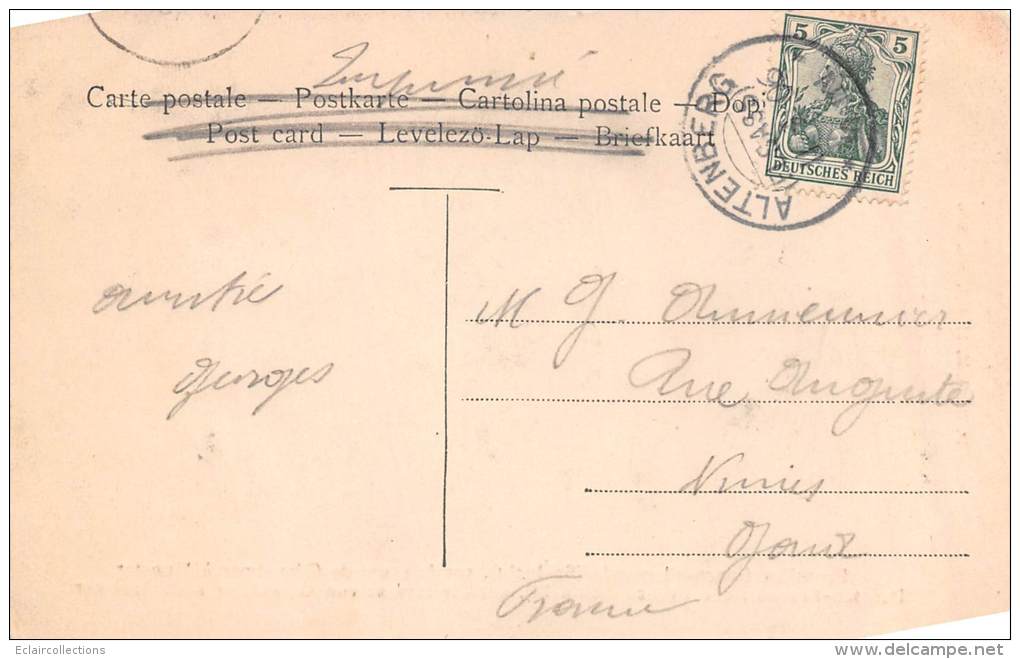 Imprimé
5 5
Carte postale — Postkarte — Cartolina postale — Dop
Post card — Levelező-Lap — Briefkaart
DEUTSCHES REICH
ALTENBERG
Amitié
Georges
M G.
Rue Auguste
Nimes
Gard
France
Eclaircollections
www.delcampe.net